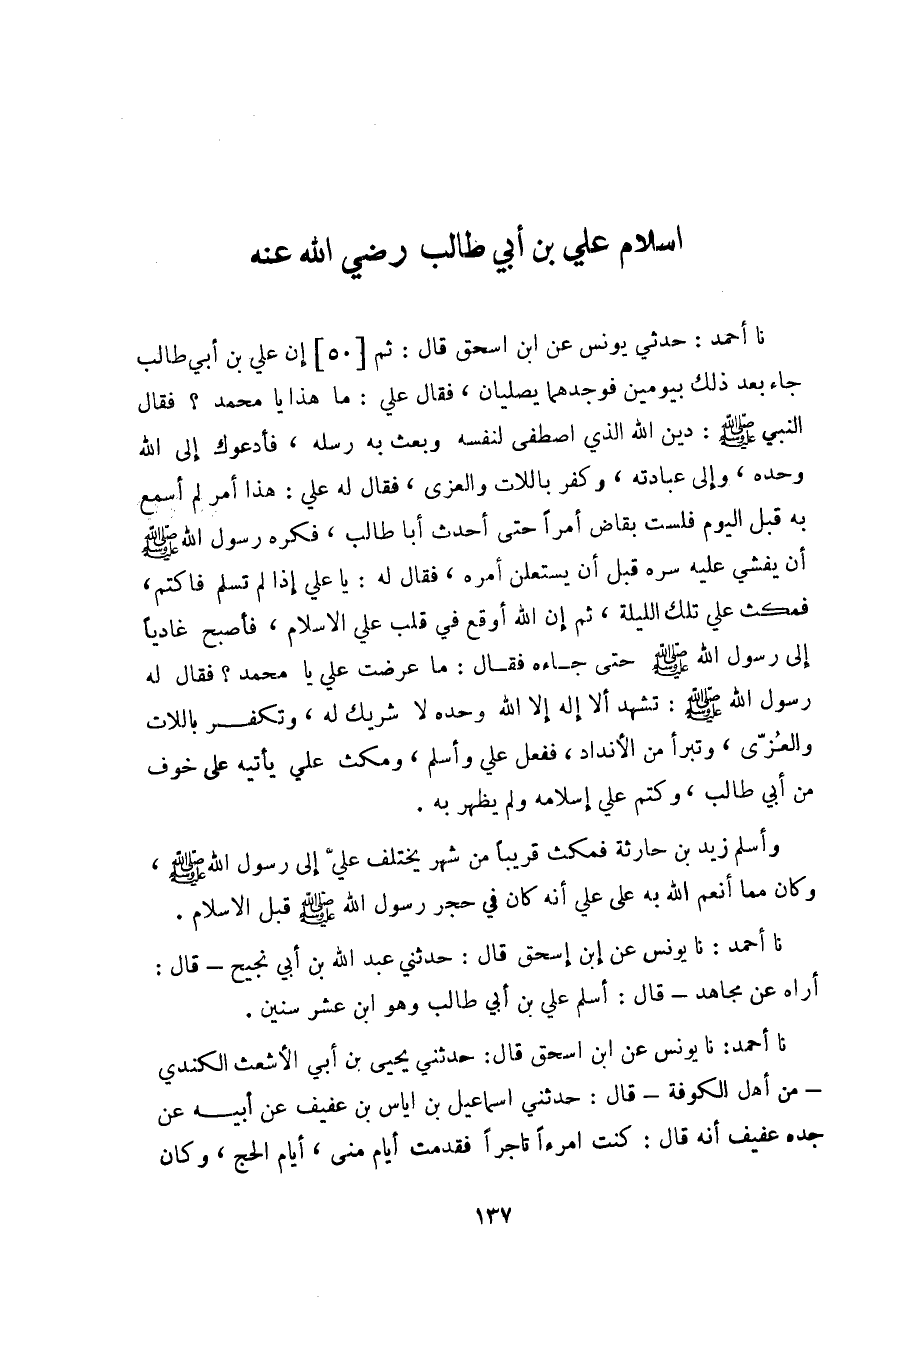 اسلام علي بن أبي طالب رضي الله عنه
نا أحمد : حدثي يونس عن ابن اسحق قال : ثم [٥٠] إن علي بن أبي طالب
جاء بعد ذلك بيومين فوجدهما يصليان ، فقال علي : ما هذا يا محمد ؟ فقال
النبي ﷺ : دين الله الذي اصطفى لنفسه وبعث به رسله ، فأدعوك إلى الله
وحده ، وإلى عبادته ، وكفر باللات والعزى ، فقال له علي : هذا أمر لم أسمع
به قبل اليوم فلست بقاض أمراً حتى أحدث أبا طالب ، فكره رسول الله ﷺ
أن يفشي عليه سره قبل أن يستعلن أمره ، فقال له : يا علي إذا لم تسلم فاكتم ،
فمكث علي تلك الليلة ، ثم إن الله أوقع في قلب علي الاسلام ، فأصبح غادياً
إلى رسول الله ﷺ حتى جـاءه فقـال : ما عرضت علي يا محمد ؟ فقال له
رسول الله ﷺ : تشهد ألا إله إلا الله وحده لا شريك له ، وتكفـــر باللات
والعُزّى ، وتبرأ من الأنداد ، ففعل علي وأسلم ، ومكث علي يأتيه على خوف
من أبي طالب ، وكتم علي إسلامه ولم يظهر به .
وأسلم زيد بن حارثة فمكث قريباً من شهر يختلف عليّ إلى رسول الله ﷺ ،
وكان مما أنعم الله به على علي أنه كان في حجر رسول الله ﷺ قبل الاسلام .
نا أحمد : نا يونس عن إبن إسحق قال : حدثني عبد الله بن أبي نجيح – قال :
أراه عن مجاهد – قال : أسلم علي بن أبي طالب وهو ابن عشر سنين .
نا أحمد: نا يونس عن ابن اسحق قال: حدثني يحيى بن أبي الأشعث الكندي
– من أهل الكوفة – قال : حدثني اسماعيل بن اياس بن عفيف عن أبيـــه عن
جده عفيف أنه قال : كنت امرءاً تاجراً فقدمت أيام منى ، أيام الحج ، وكان
١٣٧